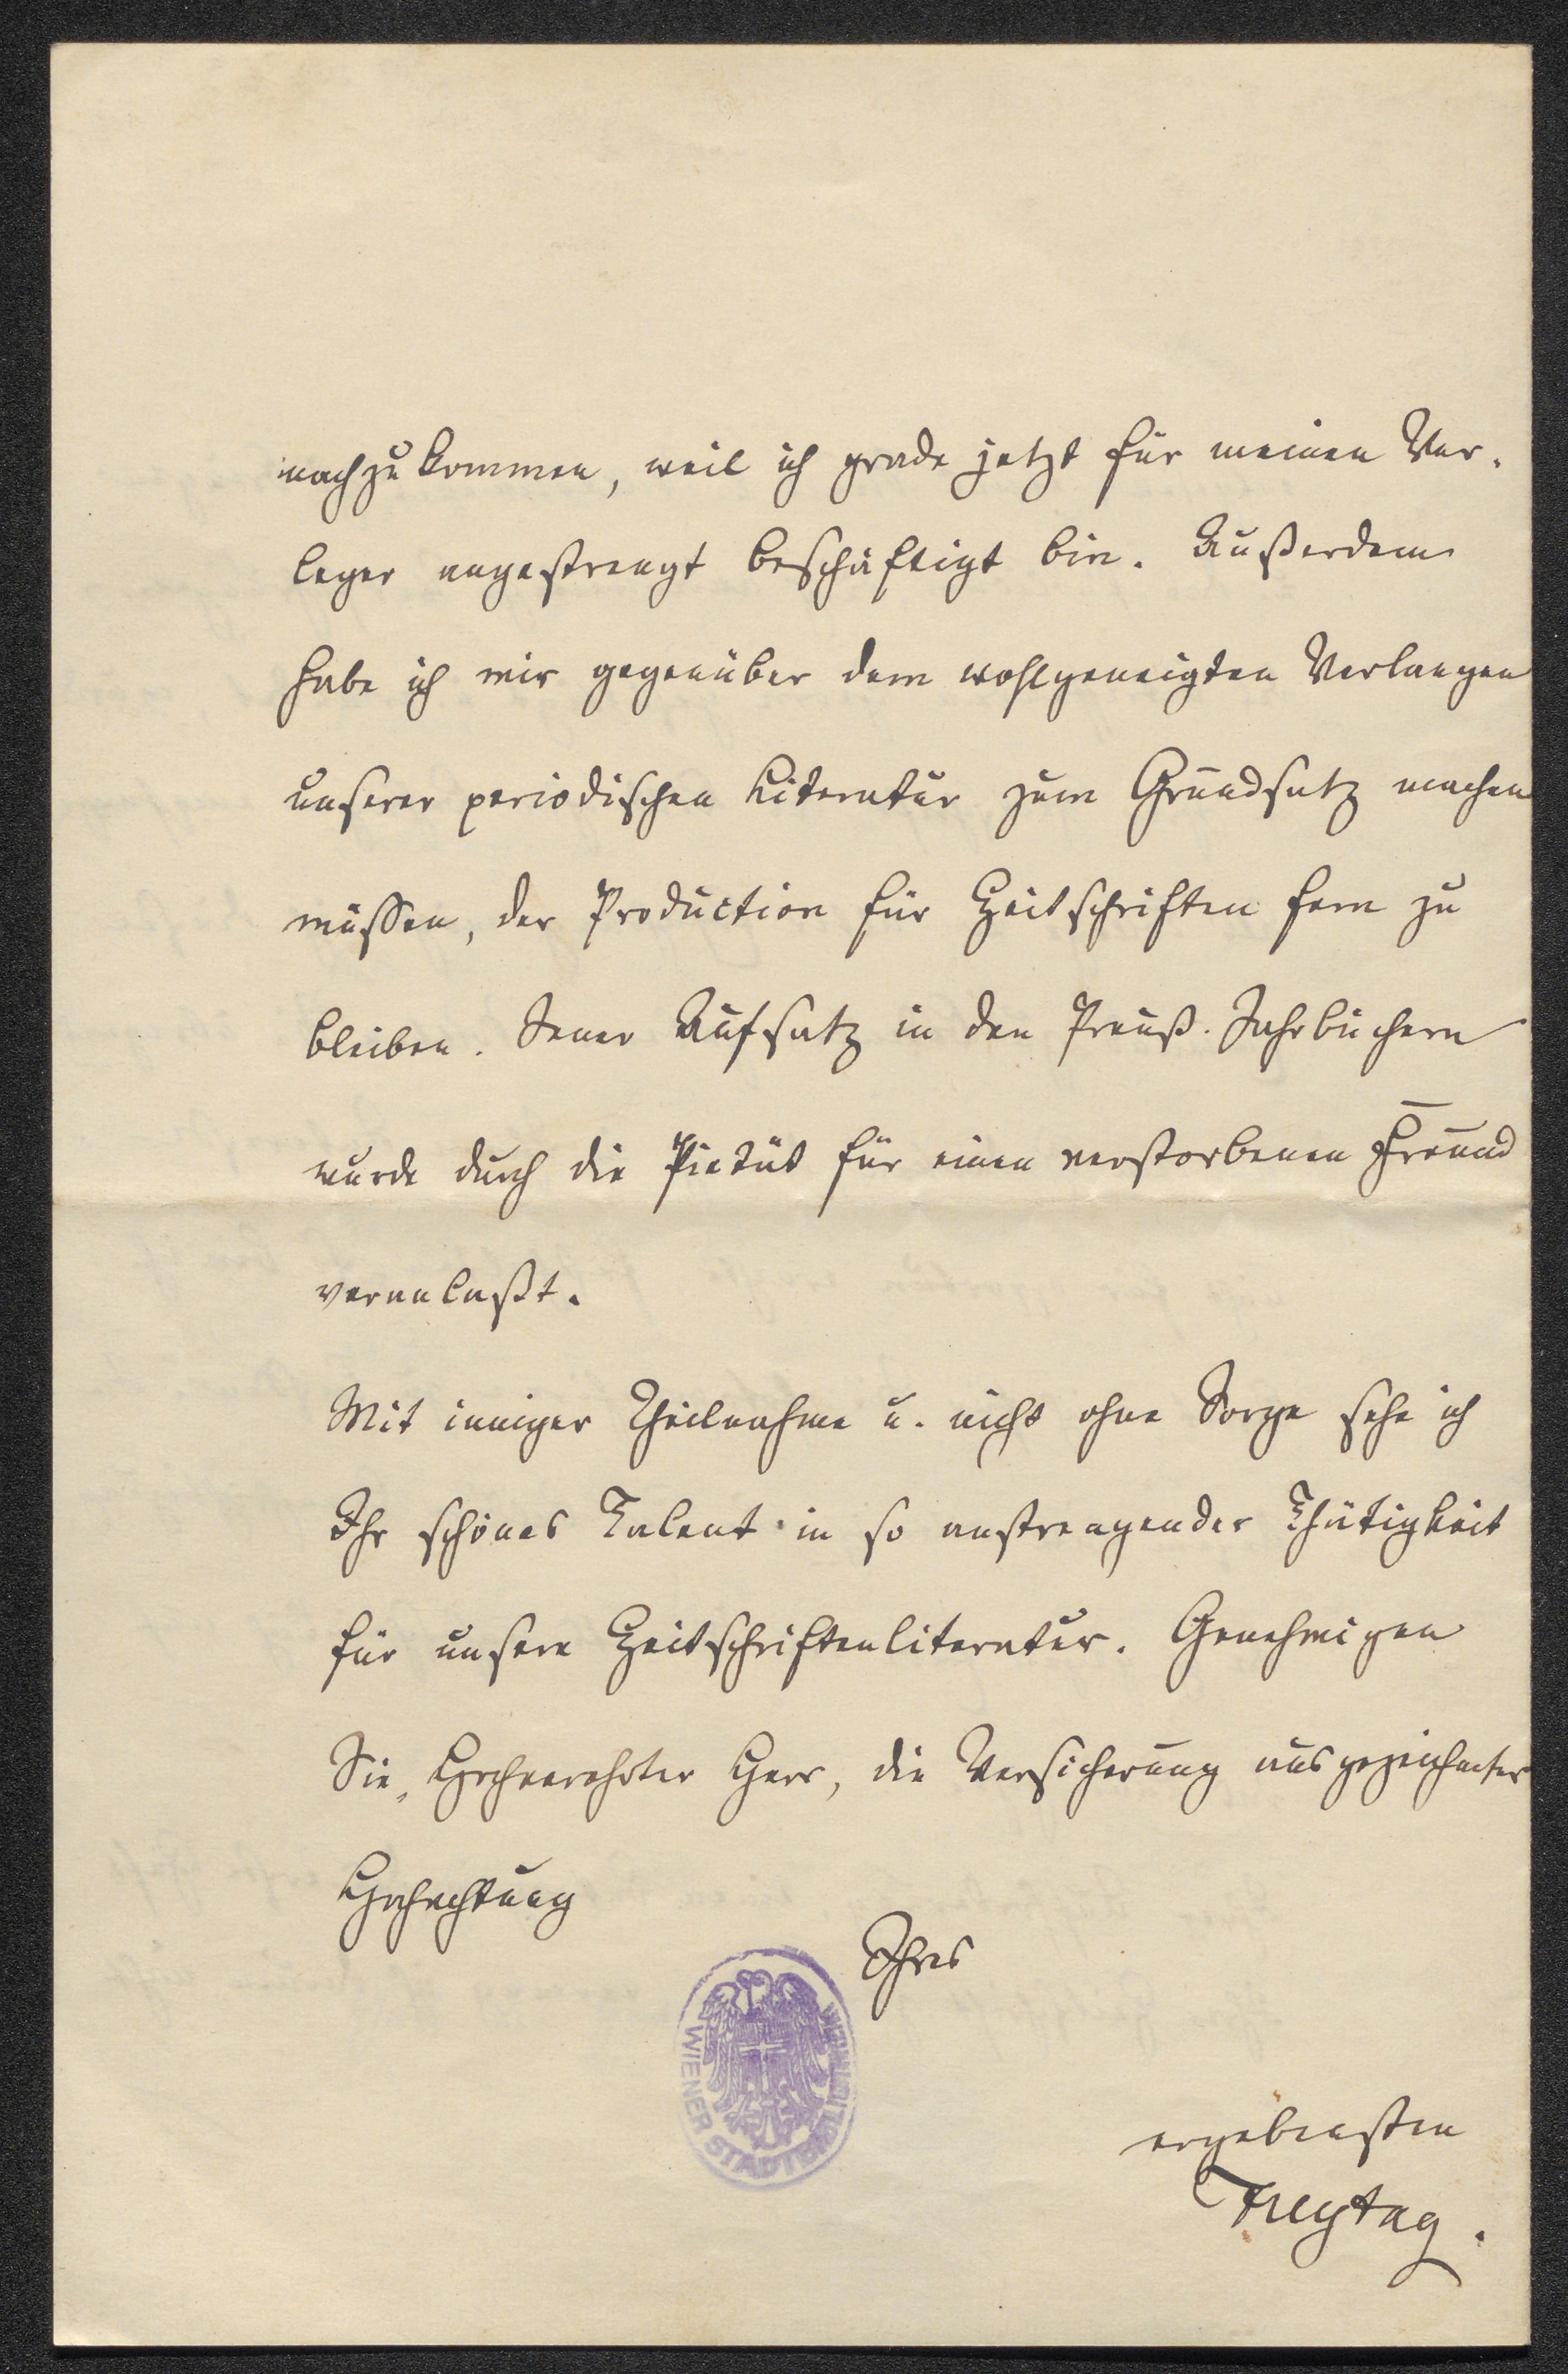 nachzukommen, weil ich grade jetzt für meinen Ver-
leger angestrengt beschäftigt bin. Außerdem
habe ich mir gegenüber dem wohlgeneigten Verlangen
unserer periodischen Literatur zum Grundsatz machen
müssen, der Production für Zeitschriften fern zu
bleiben. Jener Aufsatz in den Preuß. Jahrbüchern
wurde durch die Pietät für einen verstorbenen Freund
veranlaßt.
Mit inniger Theilnahme u. nicht ohne Sorge sehe ich
Ihr schönes Talent in so anstrengender Thätigkeit
für unsere Zeitschriftenliteratur. Genehmigen
Sie, Hochverehrter Herr, die Versicherung ausgezeichneter
Hochachtung
Ihres
WIENER STADTBIBLIOTHEK
ergebensten
Freytag.